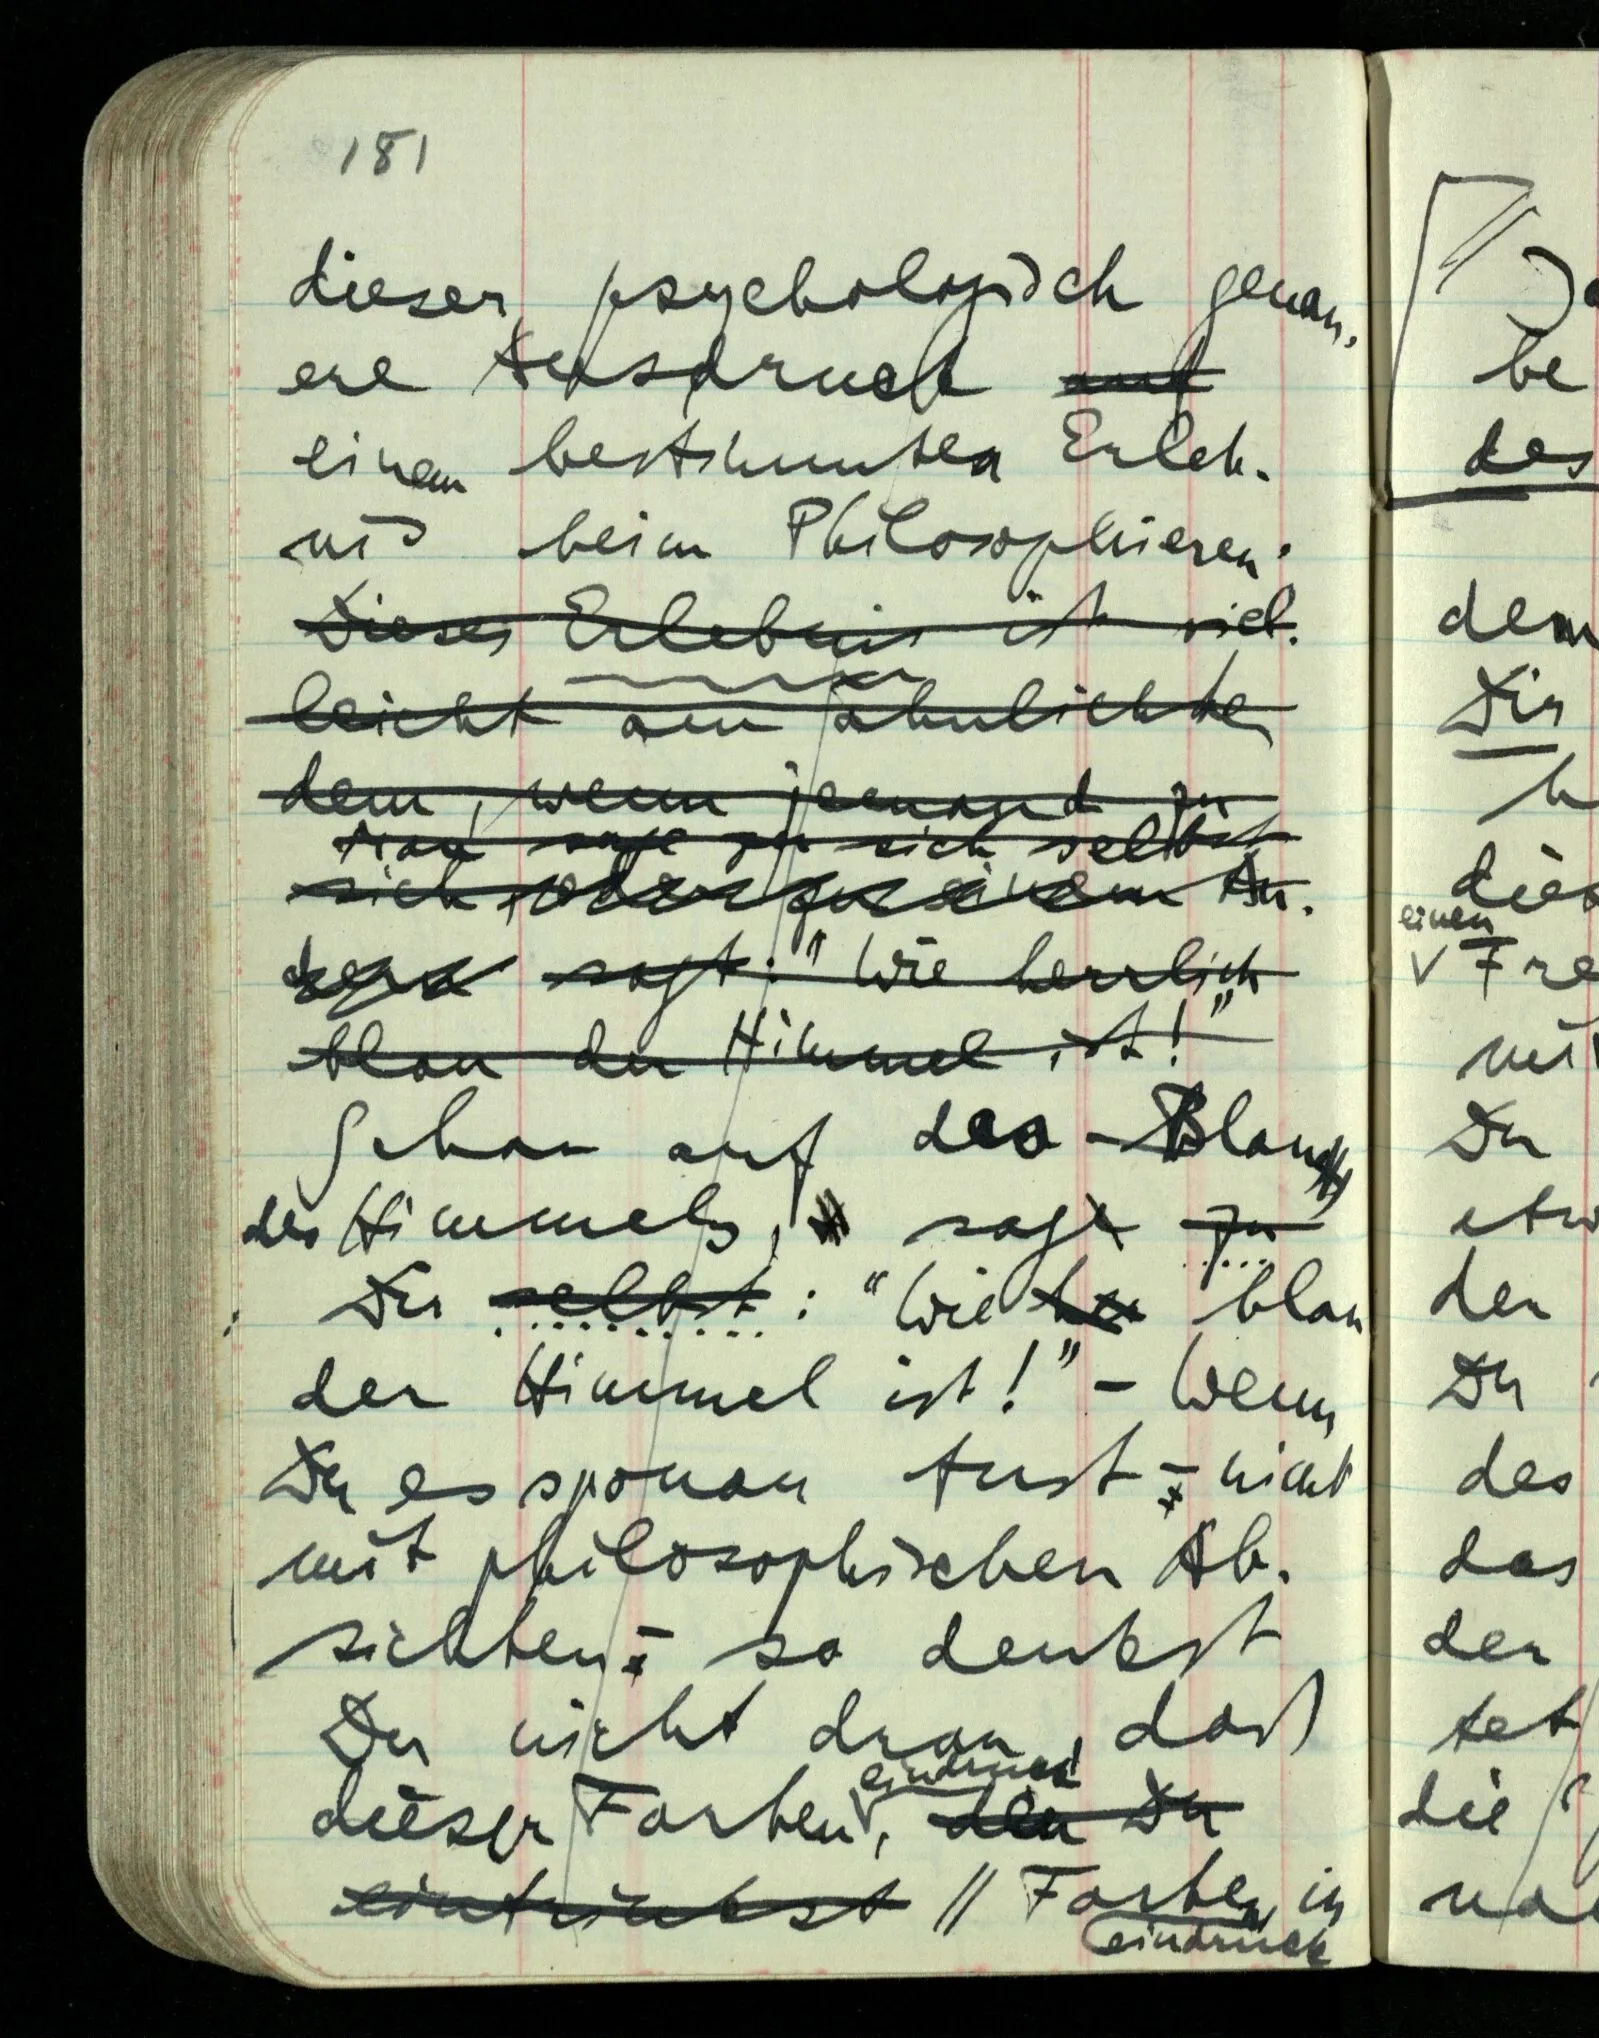 181
dieser, psychologisch genau-
ere Ausdruck auf
einem bestimmten Erleb-
nis beim Philosophieren.
Dieses Erlebnis ist viel-
leicht am ähnlichste
dem, wenn jemand zu
Man sage zu sich selbst
sich, oder zu einem An-
dern sagt: "Wie herrlich
blau der Himmel ist!"
Schau auf das Blau
des Himmels, sage zu
Dir selbst: "Wie blau
der Himmel ist!" – Wenn
Du es sponan tust – nicht
mit philosophischen Ab-
sichten – so denkst
Du nicht dran, daß
eindruck
dieser Farben, den Du
eintrinkst // Farben in
eindruck
be
des
dem
Dir
einen
Du
der
Du
des
das
der
tet
die